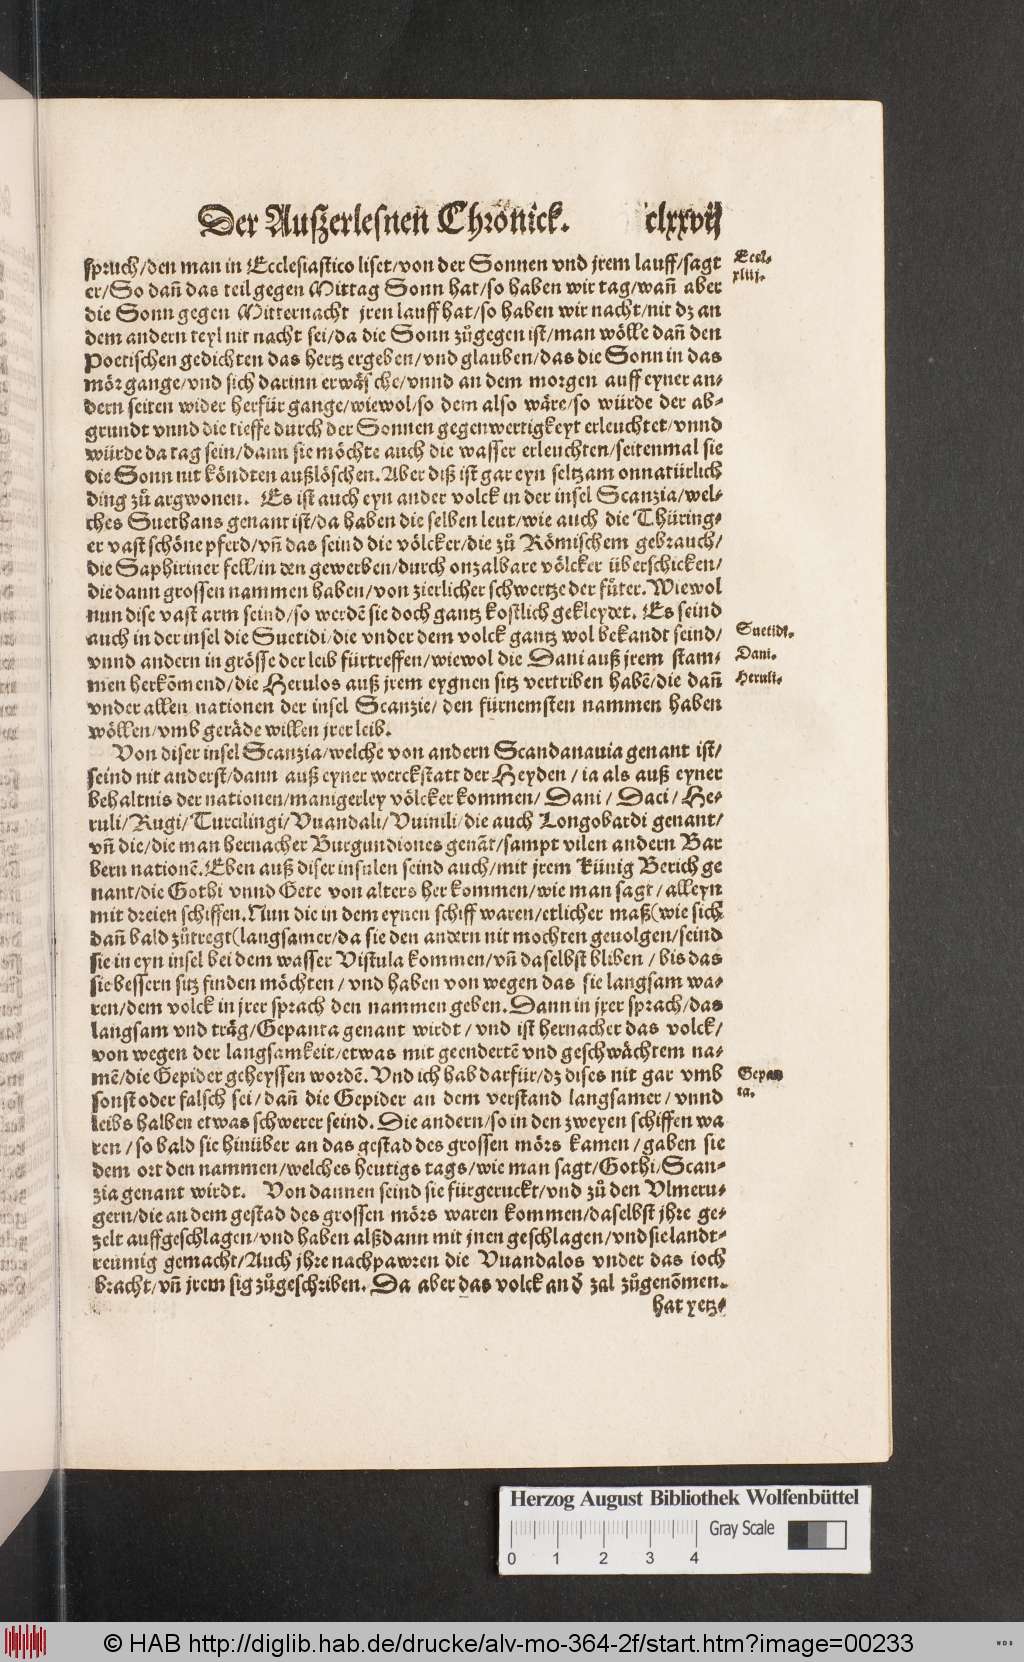 Der Außerlesnen Chronick. clxxvij
spruch/den man in Ecclesiastico liset/von der Sonnen vnd jrem lauff/sagt
Eccl.
xliij.
er/So dañ das teil gegen Mittag Sonn hat/so haben wir tag/wañ aber
die Sonn gegen Mitternacht jren lauff hat/so haben wir nacht/nit dz an
dem andern teyl nit nacht sei/da die Sonn zůgegen ist/man wölle dañ den
Poetischen gedichten das hertz ergeben/vnd glauben/das die Sonn in das
mör gange/vnd sich darinn erwäsche/vnnd an dem morgen auff eyner an-
dern seiten wider herfür gange/wiewol/so dem also wäre/so würde der ab-
grundt vnnd die tieffe durch der Sonnen gegenwertigkeyt erleuchtet/vnnd
würde da tag sein/dann sie möchte auch die wasser erleuchten/seitenmal sie
die Sonn nit köndten außlöschen. Aber diß ist gar eyn seltzam onnatürlich
ding zů argwonen. Es ist auch eyn ander volck in der insel Scanzia/wel-
ches Suethans genant ist/da haben die selben leut/wie auch die Thüring-
er vast schöne pferd/vñ das seind die völcker/die zů Römischem gebrauch/
die Saphiriner fell/in den gewerben/durch onzalbare völcker überschicken/
die dann grossen nammen haben/von zierlicher schwertze der fůter. Wiewol
nun dise vast arm seind/so werdē sie doch gantz kostlich gekleydet. Es seind
auch in der insel die Suetidi/die vnder dem volck gantz wol bekandt seind/
Suetidi.
vnnd andern in grösse der leib fürtreffen/wiewol die Dani auß jrem stam-
Dani.
men herkōmend/die Herulos auß jrem eygnen sitz vertriben habē/die dañ
Heruli.
vnder allen nationen der insel Scanzie/den fürnemsten nammen haben
wöllen/vmb geräde willen jrer leib.
Von diser insel Scanzia/welche von andern Scandanauia genant ist/
seind nit anderst/dann auß eyner werckstatt der Heyden/ia als auß eyner
behaltnis der nationen/manigerley völcker kommen/Dani/Daci/He-
ruli/Rugi/Turcilingi/Vuandali/Vuinili/die auch Longobardi genant/
vñ die/die man hernacher Burgundiones genāt/sampt vilen andern Bar
bern nationē. Eben auß diser insulen seind auch/mit jrem Künig Berich ge
nant/die Gothi vnnd Gete von alters her kommen/wie man sagt/alleyn
mit dreien schiffen. Nun die in dem eynen schiff waren/etlicher maß(wie sich
dañ bald zůtregt(langsamer/da sie den andern nit mochten geuolgen/seind
sie in eyn insel bei dem wasser Vistula kommen/vñ daselbst bliben/bis das
sie bessern sitz finden möchten/vnd haben von wegen das sie langsam wa-
ren/dem volck in jrer sprach den nammen geben. Dann in jrer sprach/das
langsam vnd träg/Gepanta genant wirdt/vnd ist hernacher das volck/
von wegen der langsamkeit/etwas mit geendertē vnd geschwächtem na-
mē/die Gepider geheyssen wordē. Vnd ich hab darfür/dz dises nit gar vmb
Gepan
ta.
sonst oder falsch sei/dañ die Gepider an dem verstand langsamer/vnnd
leibs halben etwas schwerer seind. Die andern/so in den zweyen schiffen wa
ren/so bald sie hinüber an das gestad des grossen mörs kamen/gaben sie
dem ort den nammen/welches heutigs tags/wie man sagt/Gothi/Scan-
zia genant wirdt. Von dannen seind sie fürgeruckt/vnd zů den Vlmeru-
gern/die an dem gestad des grossen mörs waren kommen/daselbst jhre ge-
zelt auffgeschlagen/vnd haben alßdann mit jnen geschlagen/vnd sie landt-
reumig gemacht/Auch jhre nachpawren die Vuandalos vnder das ioch
bracht/vñ jrem sig zůgeschriben. Da aber das volck an ď zal zůgenōmen.
hat yetz-
Herzog August Bibliothek Wolfenbüttel
Gray Scale
0 1 2 3 4
© HAB http://diglib.hab.de/drucke/alv-mo-364-2f/start.htm?image=00233